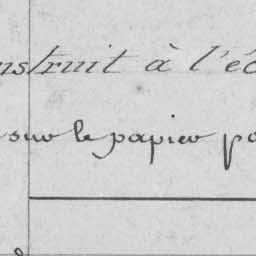 nstruit à l'éc
sur le papier po